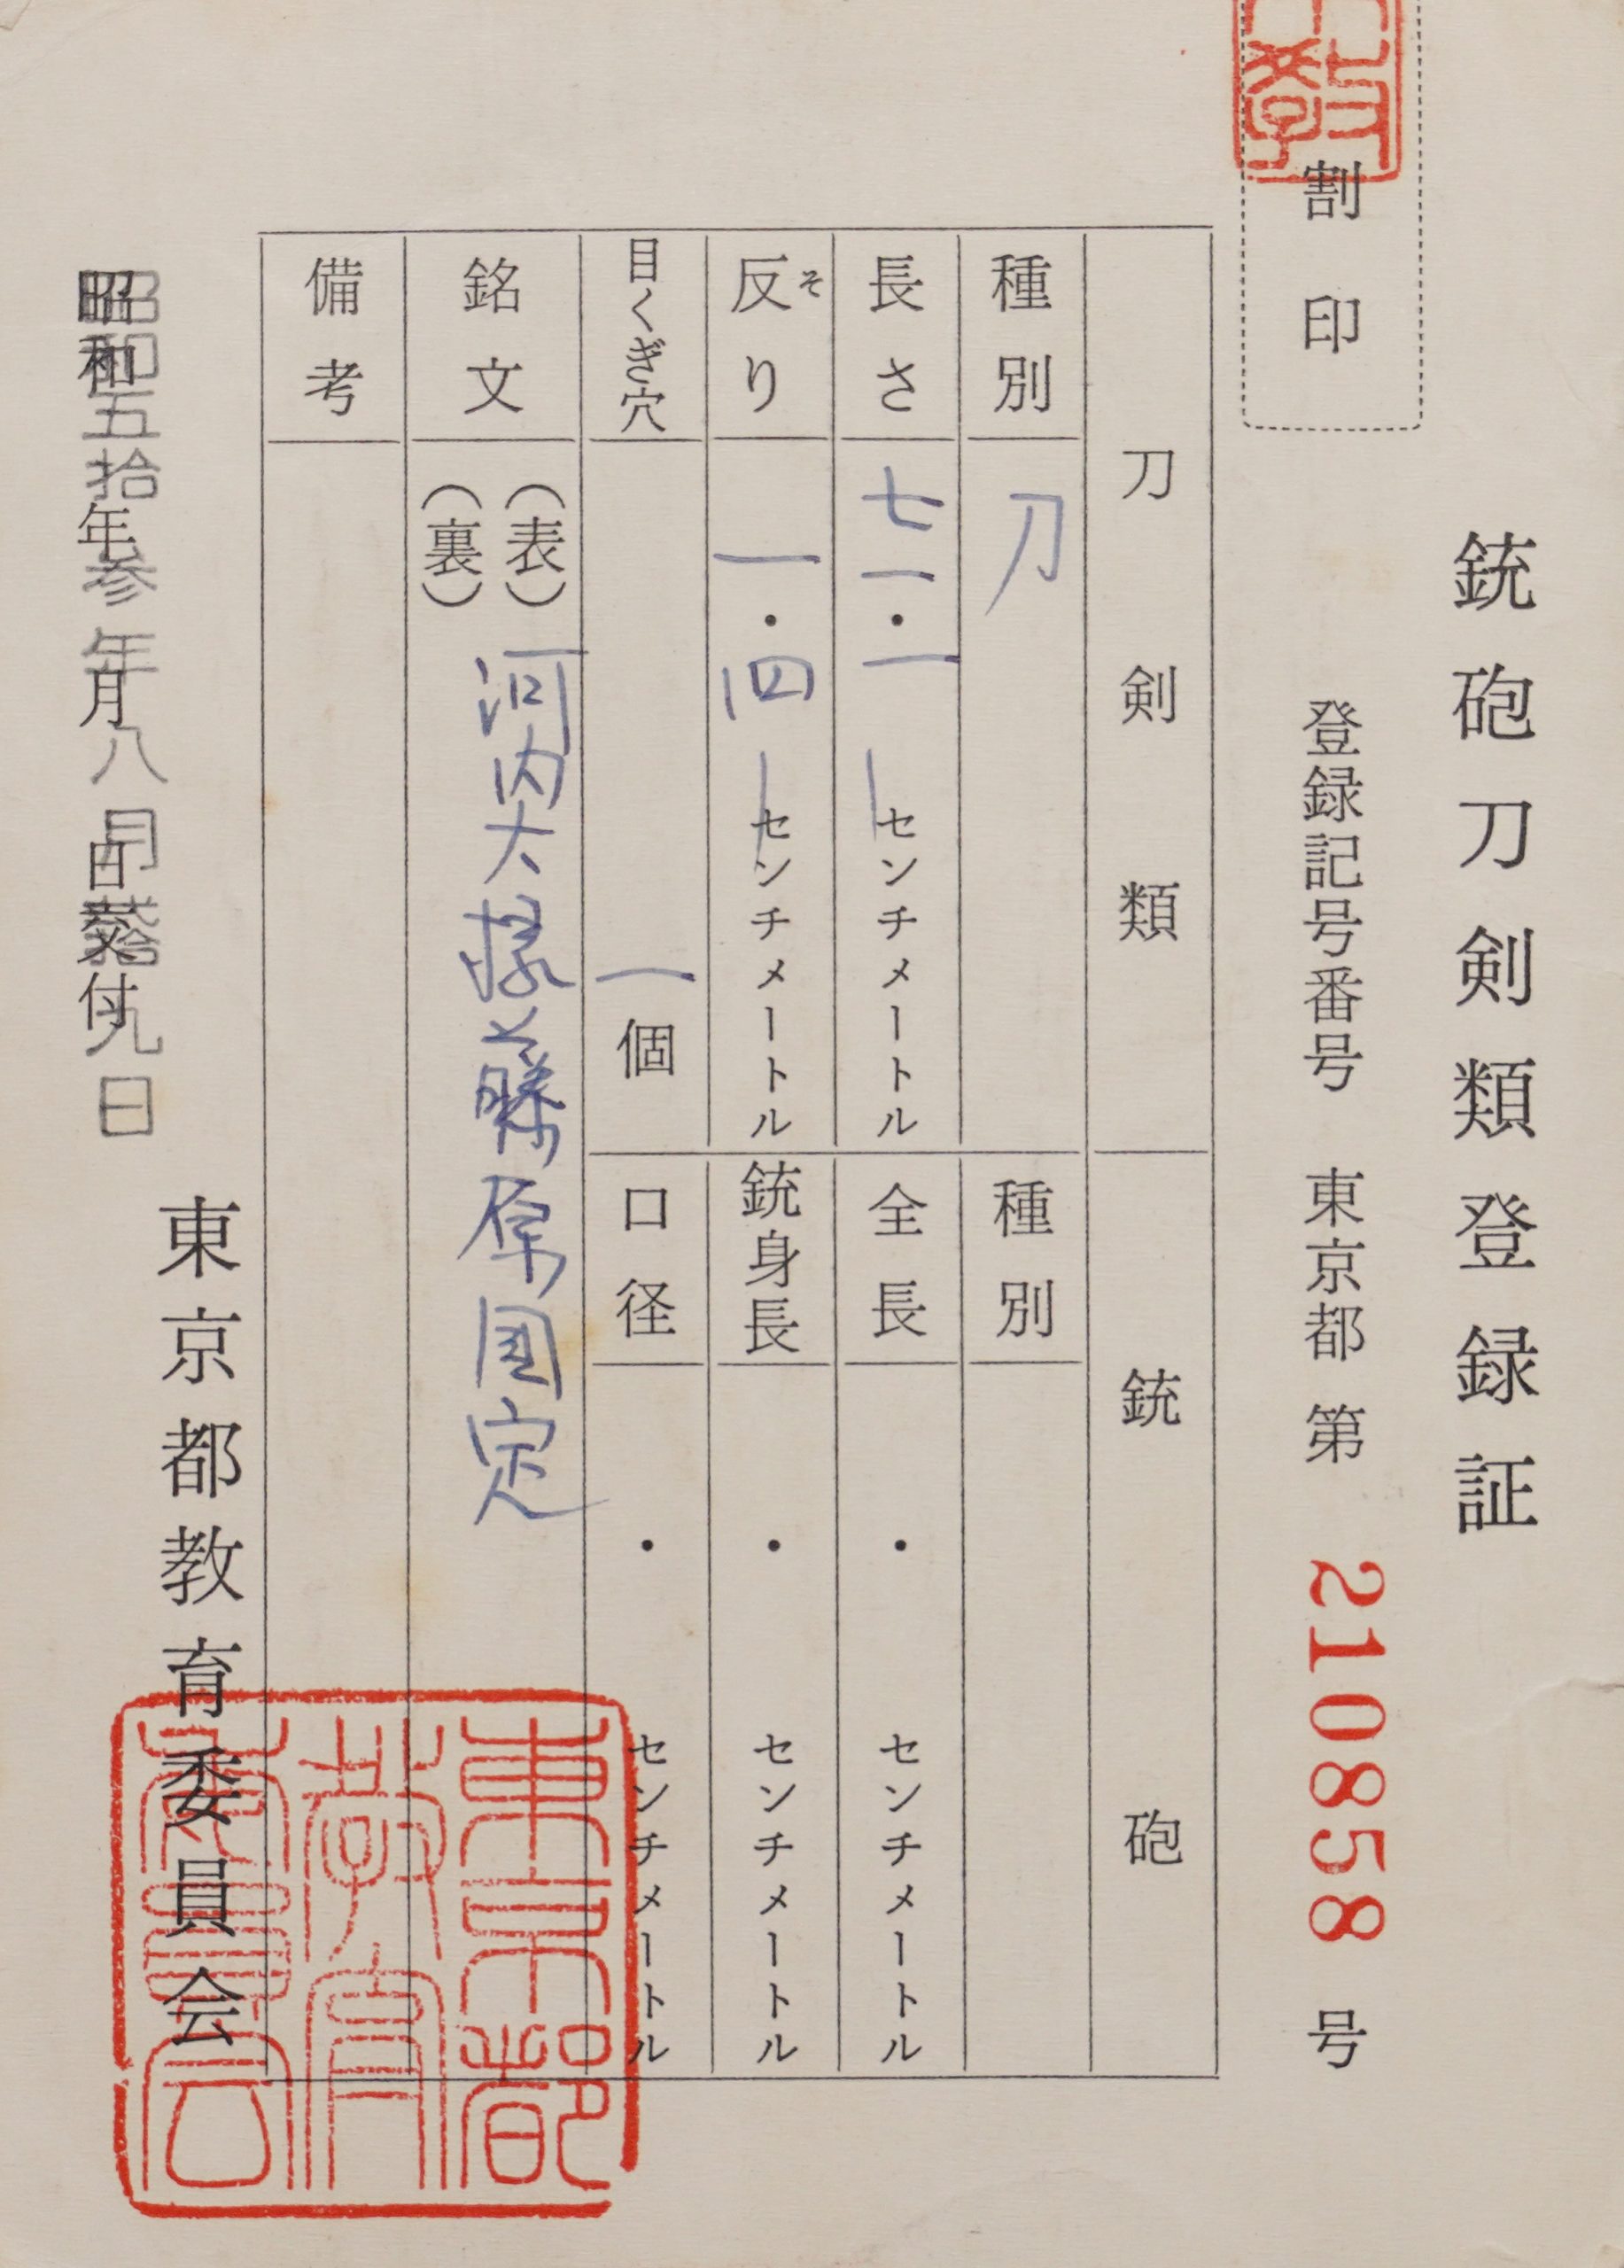 銃砲刀剣類登録証
割印
登録記号番号 東京都 第 210858 号
刀剣類
銃砲
種別 刀
種別
長さ 七一・一 センチメートル
全長 ・ センチメートル
反り そ 一・四 センチメートル
銃身長 ・ センチメートル
目くぎ穴 一 個
口径 ・ センチメートル
銘文 (表) 河内大掾藤原国定
(裏)
備考
昭和五拾参年八月拾九日
昭和 年 月 日交付
東京都教育委員会
東京都
教育
委員会